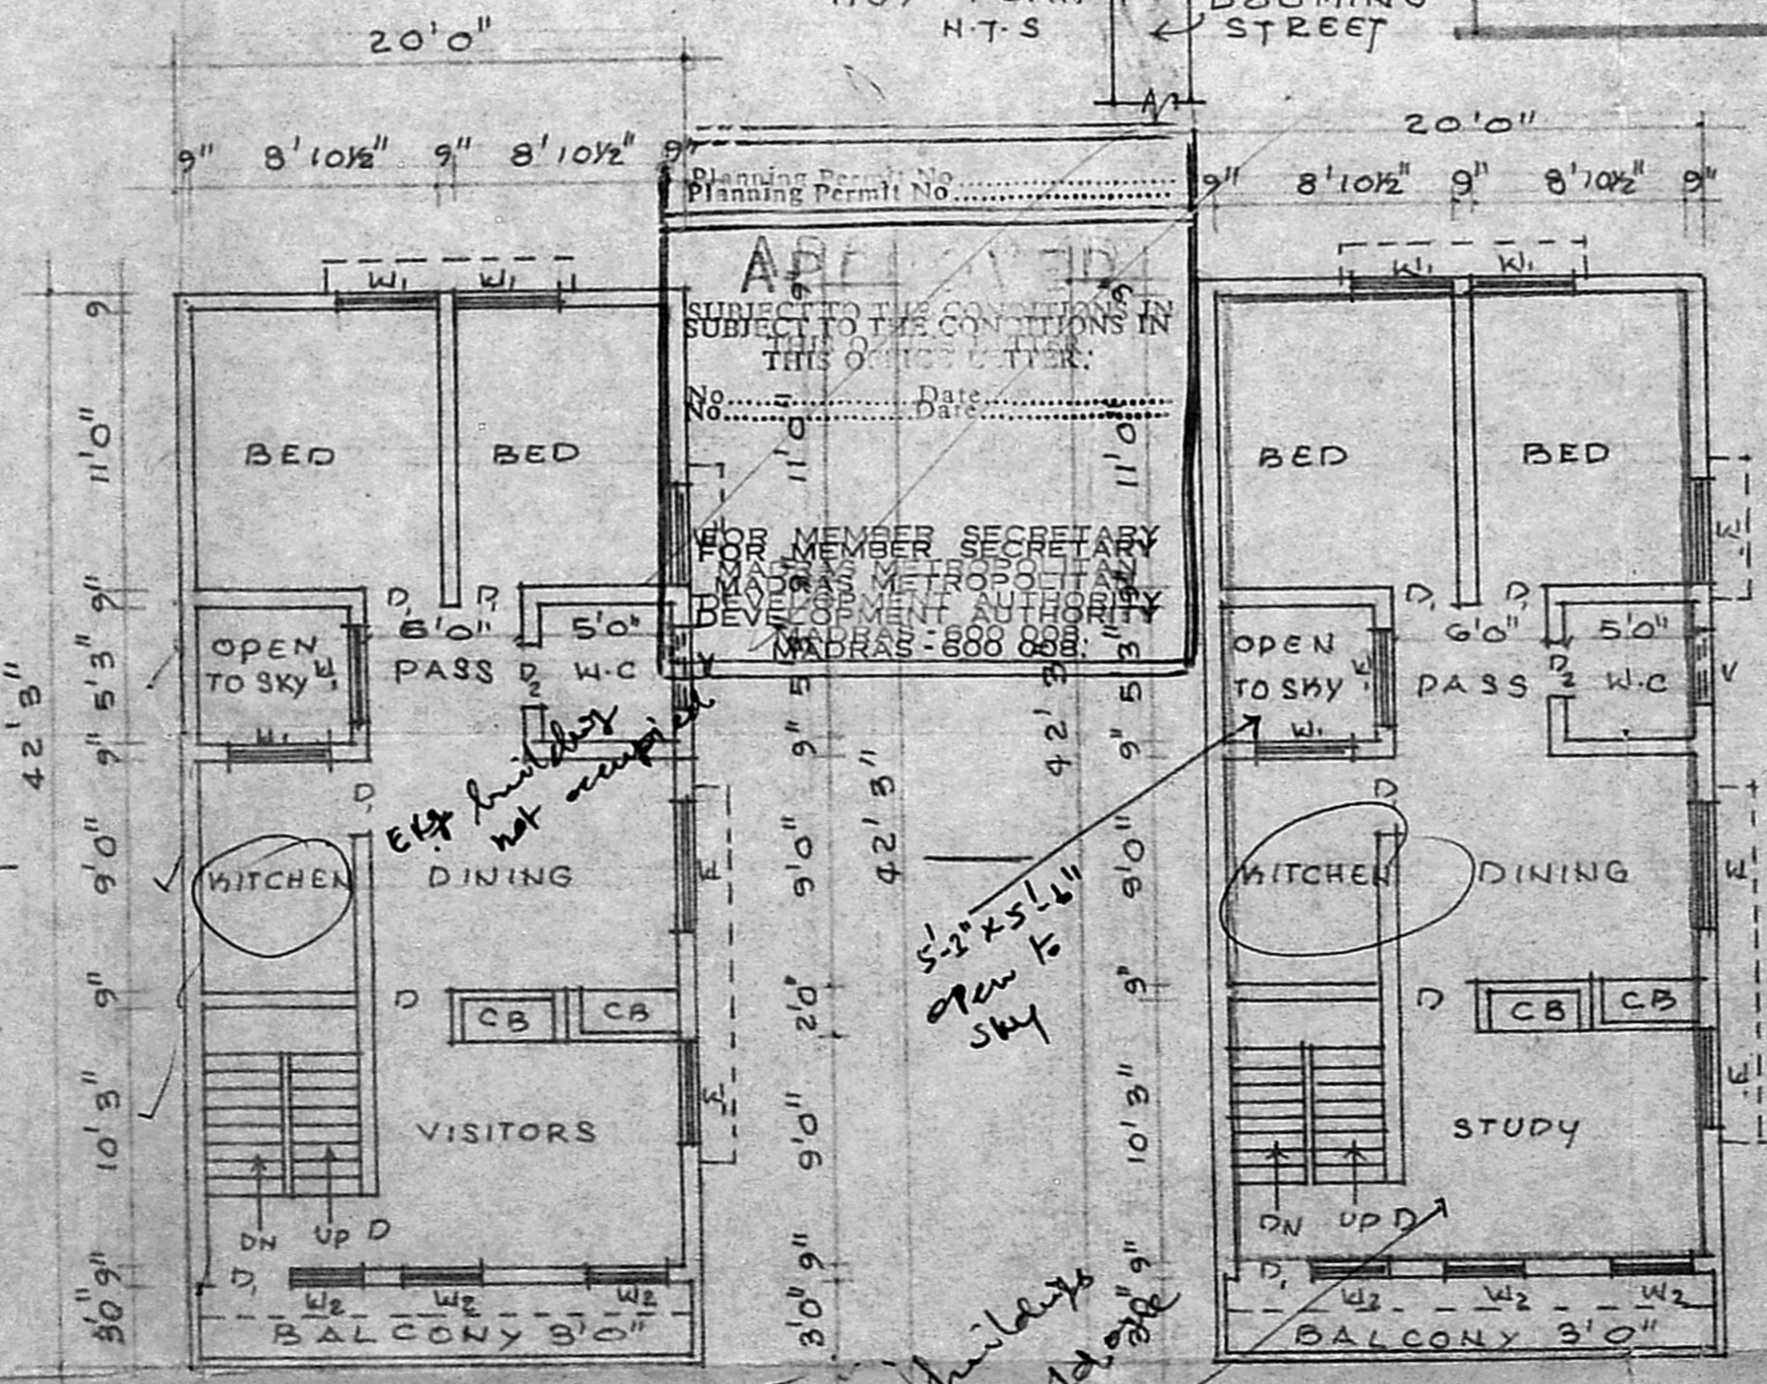 H.T.S
STREET
20'0"
9" 8'10½" 9" 8'10½" 9"
20'0"
9" 8'10½" 9" 8'10½" 9"
Planning Permit No
Planning Permit No
APPROVED
SUBJECT TO THE CONDITIONS IN
SUBJECT TO THE CONDITIONS IN
THIS OFFICE LETTER
THIS OFFICE LETTER:
No.......... Date..........
No.......... Date..........
FOR MEMBER SECRETARY
FOR MEMBER SECRETARY
MADRAS METROPOLITAN
MADRAS METROPOLITAN
DEVELOPMENT AUTHORITY
DEVELOPMENT AUTHORITY
MADRAS-600 008.
MADRAS-600 008.
W1 W1
BED BED
D1 D1
6'0" 5'0"
OPEN
TO SKY W1
PASS D2 W.C V
W1
D
Extg building
not occupied
KITCHEN DINING
D CB CB
VISITORS
DN UP D
D1
W2 W2 W2
BALCONY 3'0"
9
11'0"
9"
5'3"
9"
9'0"
9"
10'3"
9"
3'0"
42'3"
9"
11'0"
5
9"
9'0"
2'0"
9'0"
9"
3'0"
42'3"
42'3"
9
11'0"
5'3"
9"
9'0"
9"
10'3"
9"
5'-3" x 5'-6"
open to
sky
buildings
W1 W1
BED BED
D1 D1
6'0" 5'0"
OPEN
TO SKY W1
PASS D2 W.C V
W1
D
KITCHEN DINING
D CB CB
STUDY
DN UP D
D1
W2 W2 W2
BALCONY 3'0"